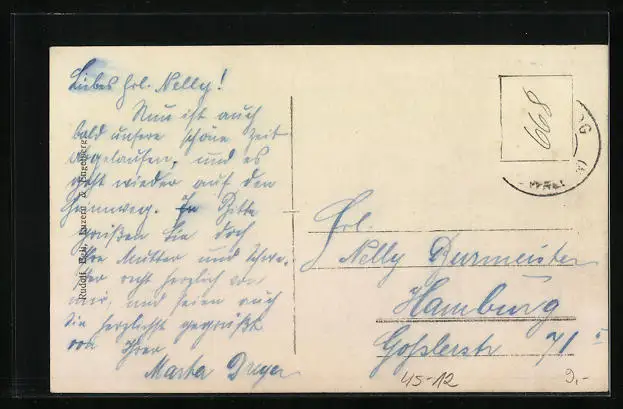 Liebes Frl. Nelly!
Nun ist auch
bald unsere schöne Zeit
abgelaufen, und es
geht wieder auf den
Heimweg. Bitte
grüßen Sie doch
Ihre Mutter und Schwe-
ster recht herzlich von
mir, und seien auch
Sie herzlichst gegrüßt
von Ihrer
Marta Dreyer
Rudolf Luzern & Engelberg
668
RG
Frl.
Nelly Burmeister
Hamburg
Goßlerstr 71 I
45-12
9,-